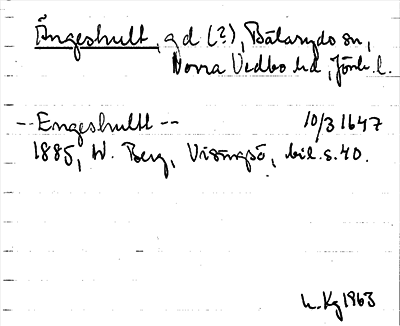 Ängeshult, gd (?), Bälaryds sn,
Norra Vedbo hd, Jönk. l.
--Engeshultt-- 10/3 1647
1885, W. Berg, Visingsö, bil. s. 40.
Kg 1963